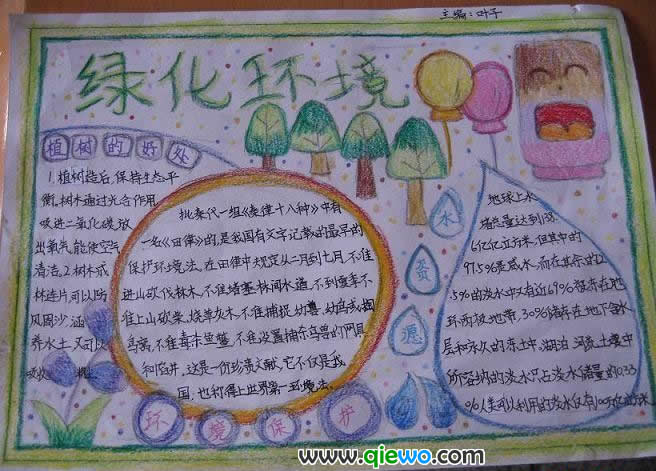 主编:叶子
绿化环境
植树的好处
1.植树造后,保持生态平
衡,树木通过光合作用
吸进二氧化碳,放
出氧气,能使空气
清洁。2.树木成
林连片,可以防
风固沙,涵
养水土,又可以
吸收
批秦代一组《秦律十八种》中有
一处《田律》的,是我国有文字记载的最早的
保护环境法,在田律中规定从二月到七月,不准
进山砍伐林木,不准堵塞林间水道,不到夏季不
准上山砍柴,烧草灰木,不准捕捉幼兽,幼鸟或掏
鸟窝,不准毒杀鱼鳖,不准设置捕杀鸟兽的网具
和陷井,这是一份珍贵文献,它不仅是我
国,也称得上世界第一环境法。
水
资
源
地球上水
储总量达到138.
6亿亿立方米,但其中的
97.5%是咸水,而在其余的2
.5%的淡水中又有近69%程存在地
球两极地带,30%储存在地下含水
层和永久的冻土中,湖泊河流土壤中
所容纳的淡水只占淡水储量的0.33
%人类可以利用的淡水仅有
环境保护
www.qiewo.com